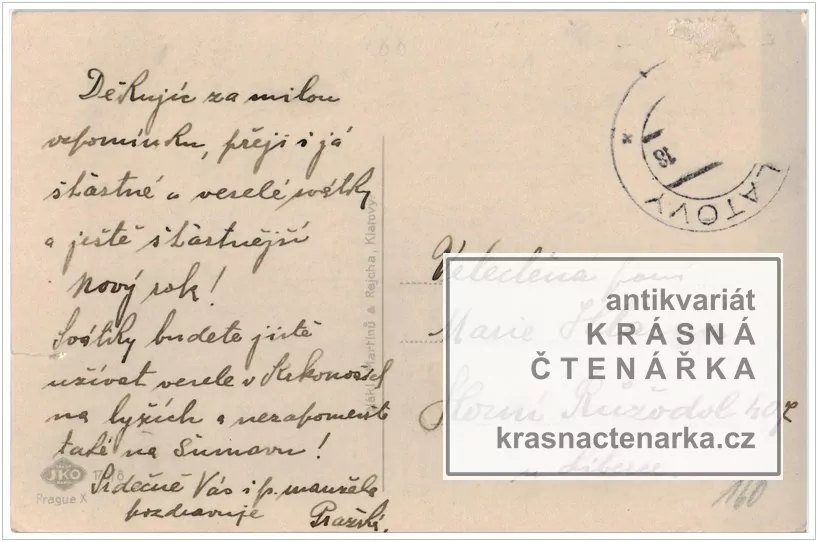 Děkujíc za milou
vzpomínku, přeji i já
šťastné a veselé svátky
a ještě šťastnější
Nový rok!
Svátky budete jistě
užívat vesele v Krkonoších
na lyžích a nezapomeňte
také na Šumavu!
Srdečně Vás i p. manžela
pozdravuje Pražská.
JKO
Prague X
Martinů & Rejcha, Klatovy
LATOVY
18
Velectěná paní
Marie
Horní Růžodol 407
u Liberce
160
antikvariát
KRÁSNÁ
ČTENÁŘKA
krasnactenarka.cz